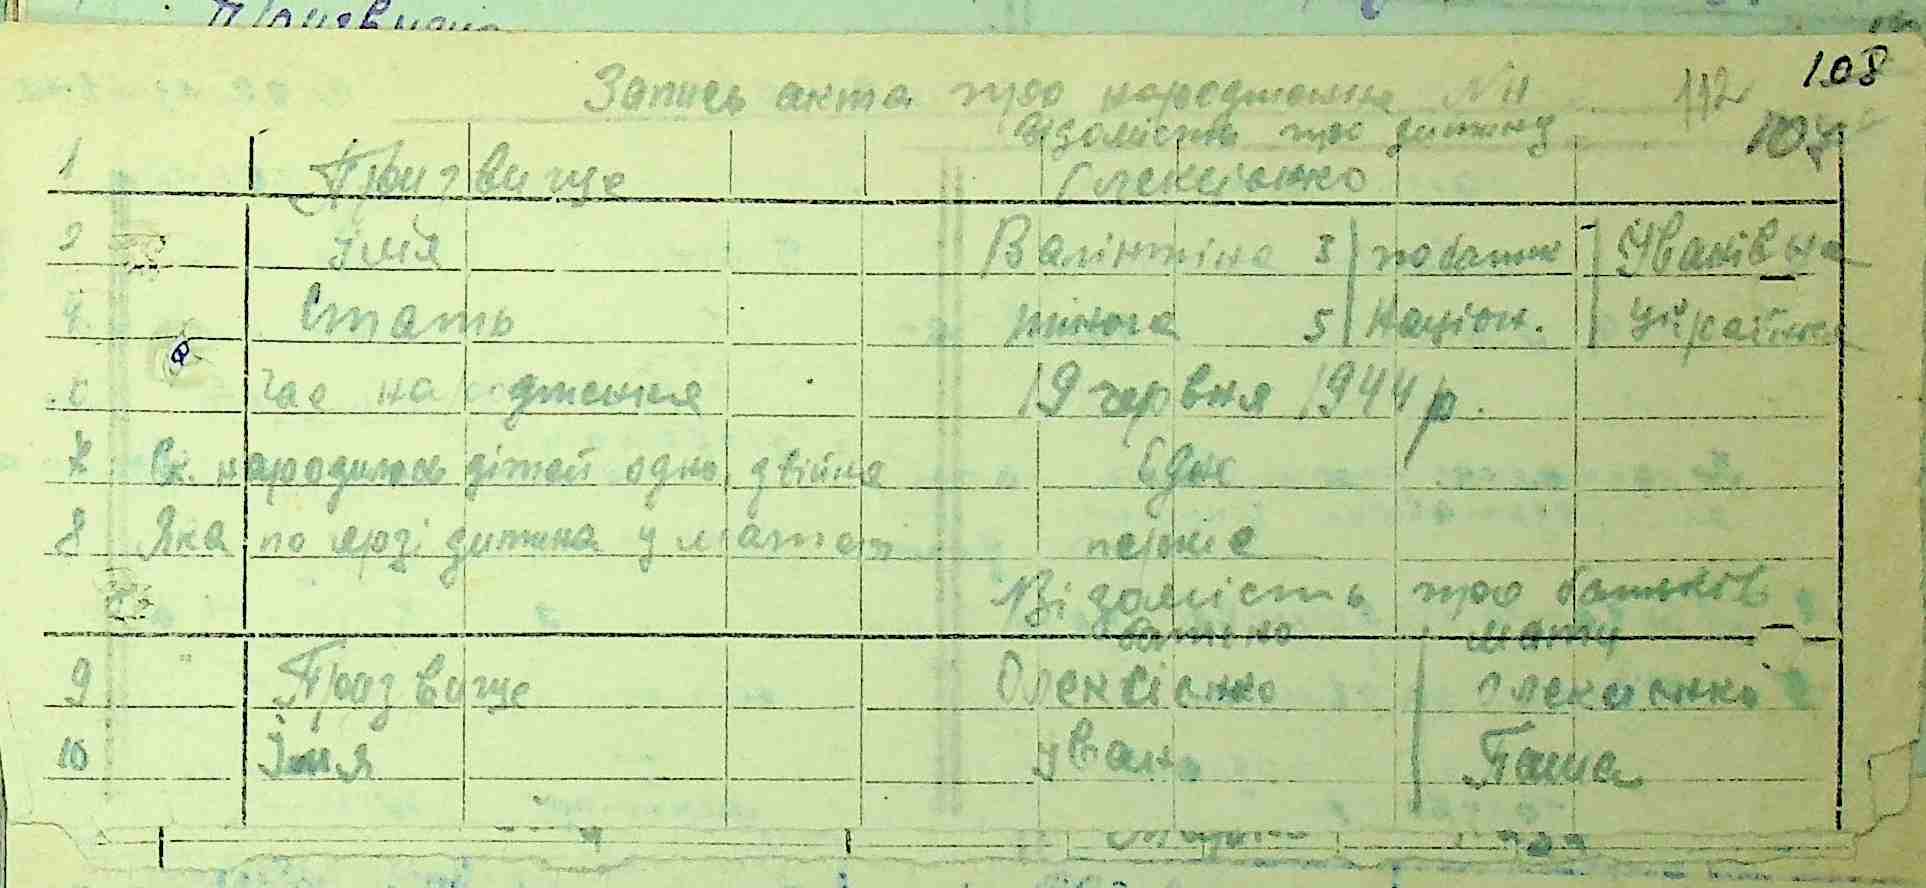 Призвище
108
Запись акта про народження N 11 112
Відомість про дитину 107
1 Призвище Олексієнко
2 Імя Валінтіна 3 побатьк Уванівна
4 Стать жіноча 5 Націон. Українка
6 Час народження 19 червня 1944 р.
7 Ск. народилось дітей одно, двійня Одне
8 Яка по лрзі дитина у матері перше
Відомість про батьків
батько мати
9 Призвище Олексієнко Олексієнко
10 Імя Уван Паша